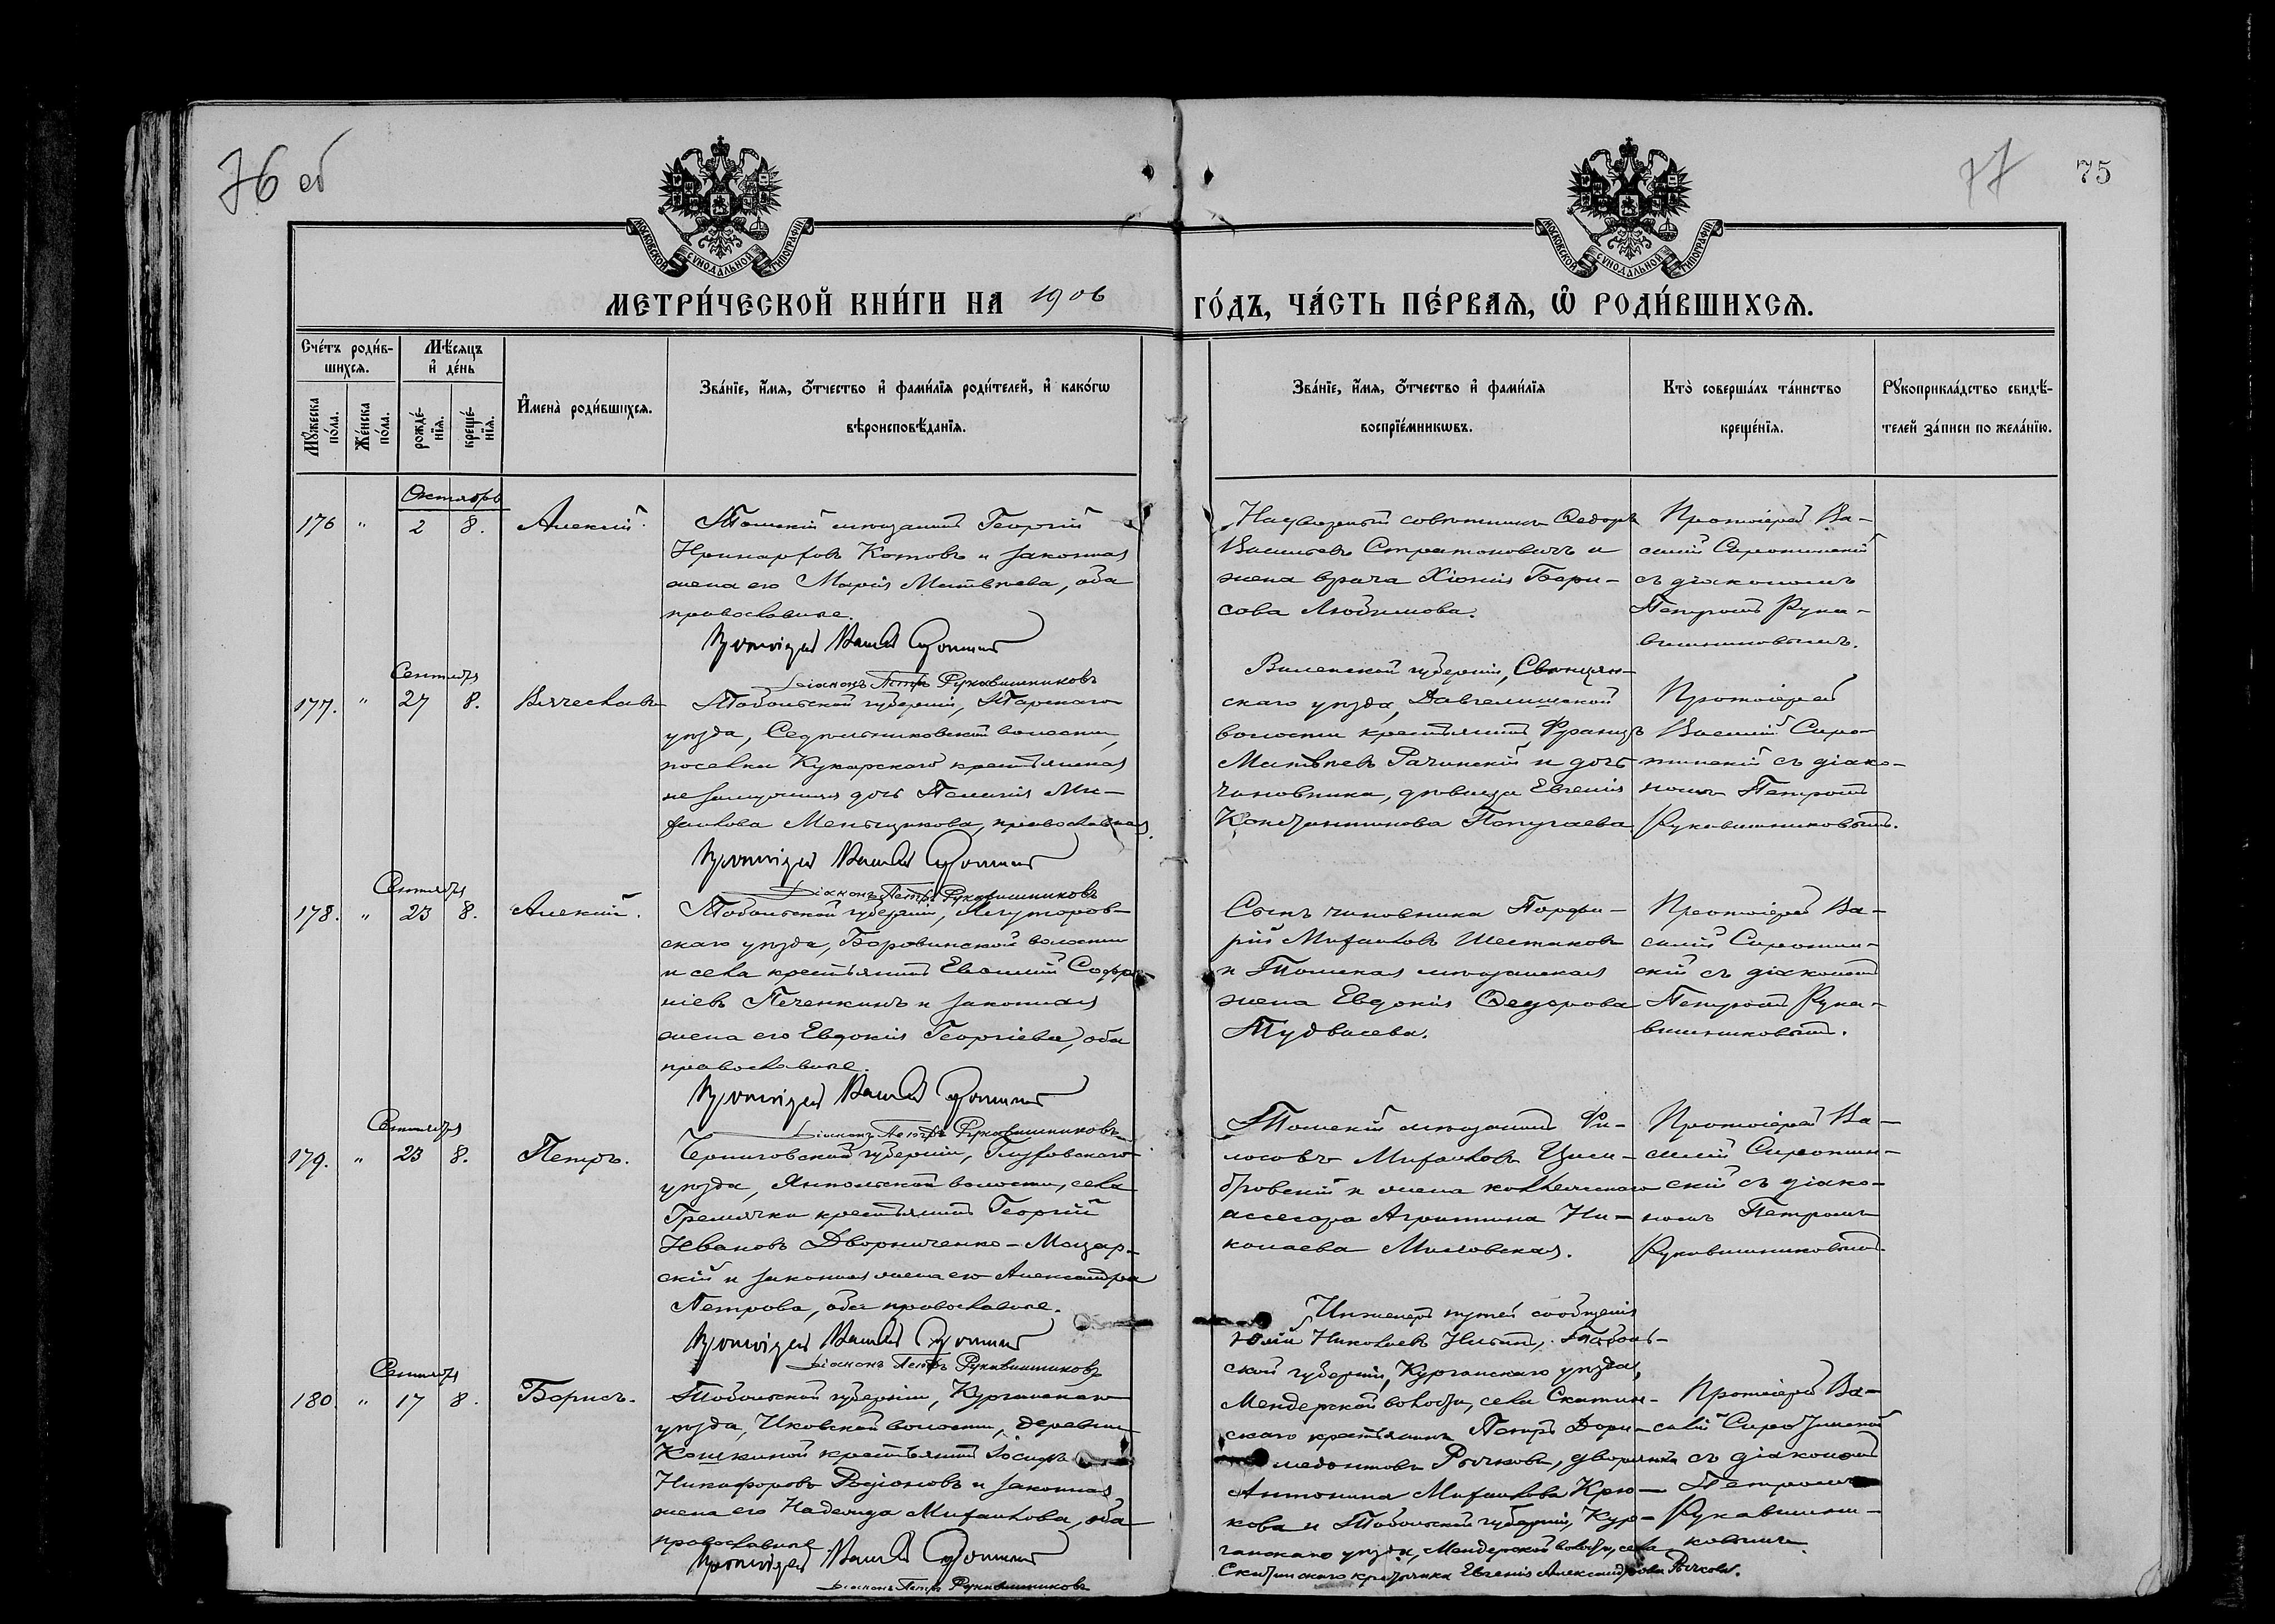 76 об
77
75
МОСКОВСКОЙ СУНОДАЛЬНОЙ ТИПОГРАФІИ
МОСКОВСКОЙ СУНОДАЛЬНОЙ ТИПОГРАФІИ
МЕТРИ́ЧЕСКОЙ КНИ́ГИ НА 1906 ГО́ДЪ, ЧА́СТЬ ПЕ́РВАѦ, Ѡ РОДИ́ВШИХСѦ.
Сче́тъ роди́в-
шихсѧ.
Мѣ́сѧцъ
и҆ де́нь
Мꙋ́жеска
по́ла.
Же́нска
по́ла.
рожде́-
нїѧ.
креще́-
нїѧ.
И҆мена̀ роди́вшихсѧ.
Зва́нїе, и҆́мѧ, ѻ҆́тчество и҆ фами́лїѧ роди́телей, и҆ како́гѡ
вѣроисповѣ́данїѧ.
Зва́нїе, и҆́мѧ, ѻ҆́тчество и҆ фами́лїѧ
воспрїе́мникѡвъ.
Кто̀ соверша́лъ та́инство
креще́нїѧ.
Рꙋкоприкла́дство свидѣ́-
телей за́писи по жела́нїю.
Октябрь
176 " 2 8. Алексій.
Томскій мѣщанинъ Георгій
Иринарховъ Котовъ и законная
жена его Марія Матвѣева, оба
православные.
Протоіерей Василій Сиротинскій
Діаконъ Петръ Рукавишниковъ
Надворный совѣтникъ Ѳедоръ
Васильевъ Стратоновичъ и
жена врача Хіонія Бори-
сова Любимова.
Протоіерей Ва-
силій Сиротинскій
съ діакономъ
Петромъ Рука-
вишниковымъ.
Сентября
177. " 27 8. Вячеславъ
Тобольской губерніи, Тарскаго
уѣзда, Седельниковской волости,
поселка Кукарскаго крестьянская
незамужняя дочь Пелагія Ми-
хаилова Меньщикова, православная.
Протоіерей Василій Сиротинскій
Діаконъ Петръ Рукавишниковъ
Виленской губерніи, Свенцян-
скаго уѣзда, Давгелишской
волости крестьянинъ Францъ
Матвѣевъ Рачинскій и дочь
чиновника, дѣвица Евгенія
Константинова Попугаева.
Протоіерей
Василій Сиро-
тинскій съ діако-
номъ Петромъ
Рукавишниковымъ.
Сентября
178. " 23 8. Алексій.
Тобольской губерніи, Ялуторов-
скаго уѣзда, Боровинской волости
и села крестьянинъ Евѳимій Софро-
ніевъ Печенкинъ и законная
жена его Евдокія Георгіева, оба
православные.
Протоіерей Василій Сиротинскій
Діаконъ Петръ Рукавишниковъ
Сынъ чиновника Порфи-
рій Михаиловъ Шестаковъ
и Томская мѣщанская
жена Евдокія Ѳедорова
Тудвасева.
Протоіерей Ва-
силій Сиротин-
скій съ діакономъ
Петромъ Рука-
вишниковымъ.
Сентября
179. " 23 8. Петръ.
Черниговской губерніи, Глуховскаго
уѣзда, Ямпольской волости, села
Гремячки крестьянинъ Георгій
Ивановъ Дворниченко-Моцар-
скій и законная жена его Александра
Петрова, оба православные.
Протоіерей Василій Сиротинскій
Діаконъ Петръ Рукавишниковъ
Томскій мѣщанинъ Фи-
лософъ Михаиловъ Цим-
бровскій и жена коллежскаго
ассесора Агрипина Ни-
колаева Миловская.
Протоіерей Ва-
силій Сиротин-
скій съ діако-
номъ Петромъ
Рукавишниковымъ
Сентября
180. " 17 8. Борисъ.
Тобольской губерніи, Курганскаго
уѣзда, Иковской волости, деревни
Кошкиной крестьянинъ Іосифъ
Никифоровъ Родіоновъ и законная
жена его Надежда Михаилова, оба
православные
Протоіерей Василій Сиротинскій
Діаконъ Петръ Рукавишниковъ
Инженеръ путей сообщенія
Юлій Николаевъ Тоболь-
ской губерніи, Курганскаго уѣзда,
Мендерской волости, села Скатин-
скаго крестьянинъ Петръ Дори-
медонтовъ Рычковъ, дворянка
Антонина Михаилова Крю-
кова и Тобольской губерніи, Кур-
ганскаго уѣзда, Мендерской волости, села
Скатинскаго крестьянка Евгенія Александрова Рычкова.
Протоіерей Ва-
силій Сиротинскій
съ діакономъ
Петромъ
Рукавишни-
ковымъ.